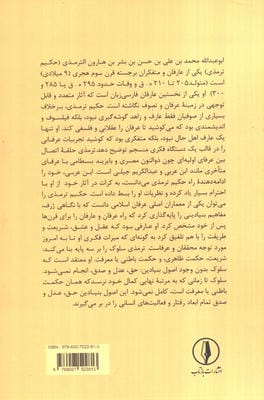 ابوعبدالله محمد بن علی بن حسن بن بشر بن هارون الترمذی (حکیم
ترمذی) یکی از عارفان و متفکران برجسته قرن سوم هجری (۹ میلادی)
است (متولد ۲۰۵ تا ۲۱۰ ه . ق و وفات حدود ۲۹۵ ه . ق یا ۲۸۵ و
۳۰۰) او یکی از نخستین عارفان فارسی‌زبان است که آثار متعدد و قابل
توجهی در زمینهٔ عرفان و تصوف نگاشته است. حکیم ترمذی، برخلاف
بسیاری از صوفیان فقط عارف و زاهد گوشه‌نشین نبود، بلکه فیلسوف و
اندیشمندی بود که می‌کوشید تا عرفان را عقلانی و فلسفی کند. او تنها
یک عارف اهل حال نبود، بلکه متفکری بود که کوشید تجربیات عرفانی
را در قالب یک دستگاه فکری منسجم توضیح دهد.ترمذی حلقهٔ اتصال
بین عرفای اولیه‌ای چون ذوالنون مصری و بایزید بسطامی با عرفای
متأخری مانند ابن‌عربی و عبدالکریم جیلی است. ابن عربی، خود را
ادامه‌دهندهٔ راه حکیم ترمذی می‌دانست، به کرات در آثار خود از او با
احترام بسیار یاد کرده و نظریات او را بسط داده است. حکیم ترمذی را
می‌توان یکی از معماران اصلی عرفان اسلامی دانست که با نگاهی ژرف،
مفاهیم بنیادینی را پایه‌گذاری کرد که راه عرفان و عارفان را برای قرن‌ها
پس از خود مشخص کرد. او عارفی بود که عقل و عشق، شریعت و
طریقت را با هم تلفیق کرد به گونه‌ای که میراث فکری او تا به امروز
مورد توجه محققان و عرفاست. ترمذی سلوک را بر سه پایه بنا می‌کند:
شریعت، حکمت ظاهری، و حکمت باطنی یا معرفت. او معتقد است که
سلوک بدون وجود اصول بنیادین: حق، عدل و صدق، انجام نمی‌شود.
سلوک تا زمانی که به مرتبهٔ نهایی کمال خود نرسد،که همان حکمت
باطنی یا معرفت است، کامل نمی‌شود. این اصول بنیادین حق، عدل و
صدق تمام ابعاد رفتار و فعالیت‌های انسانی را در بر می‌گیرند.
ISBN: 978-600-7522-81-3
9 786007 522813
انتشارات بازتاب